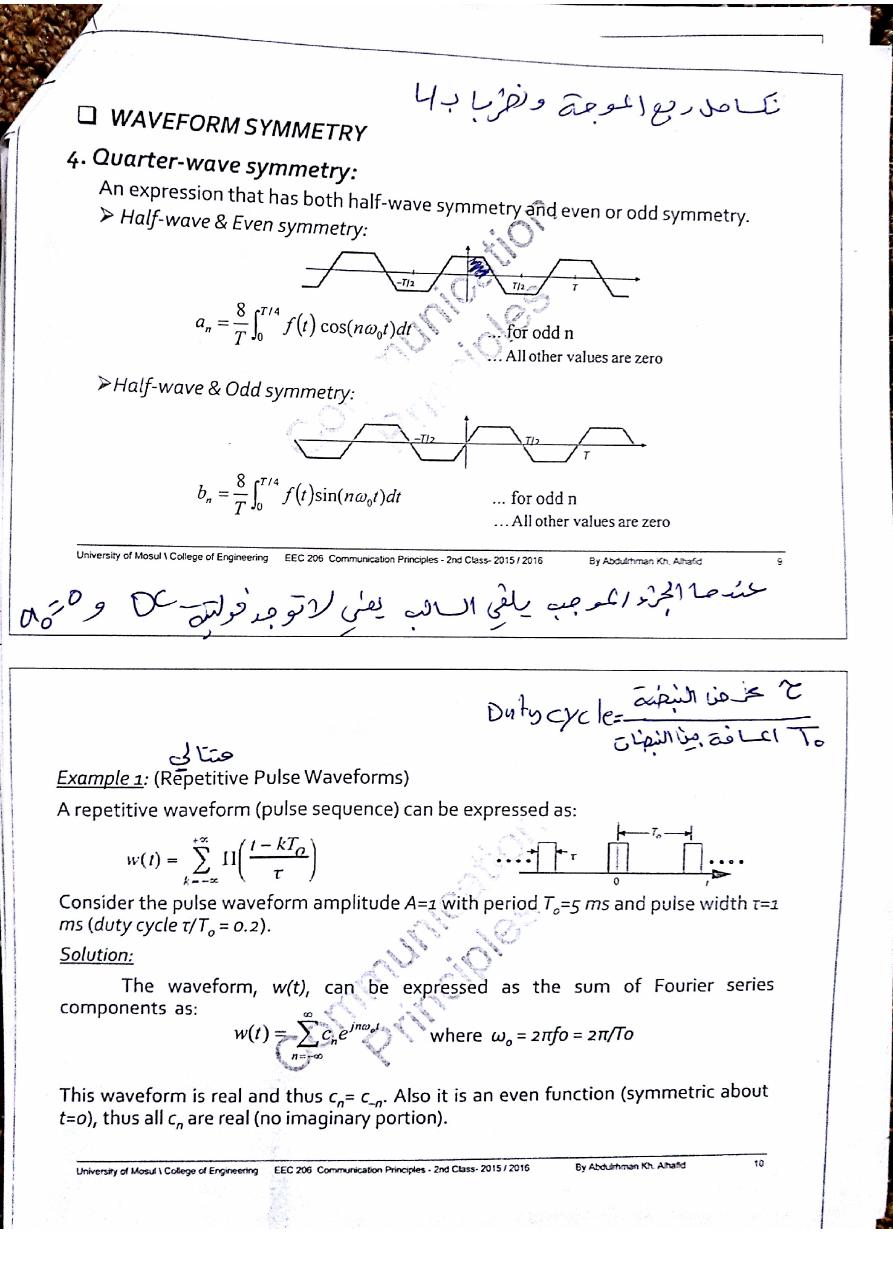 نكامل ربع الموجة ونضربها ب 4
❑ WAVEFORM SYMMETRY
4. Quarter-wave symmetry:
An expression that has both half-wave symmetry and even or odd symmetry.
➢ Half-wave & Even symmetry:
-T/2 T/2 T
a_n = 8/T ∫_0^{T/4} f(t) cos(nω_0t)dt ... for odd n
... All other values are zero
➢ Half-wave & Odd symmetry:
-T/2 T/2 T
b_n = 8/T ∫_0^{T/4} f(t)sin(nω_0t)dt ... for odd n
... All other values are zero
Communication
Principles
University of Mosul \ College of Engineering EEC 206 Communication Principles - 2nd Class- 2015 / 2016 By Abdulrhman Kh. Alhafid 9
عندما الجزء الموجب يلغي السالب يعني لا توجد فولتية DC و a_0=0
Duty cycle = τ عرض النبضة
T_0 المسافة بين النبضات
Example 1: (Repetitive Pulse Waveforms)
A repetitive waveform (pulse sequence) can be expressed as:
w(t) = ∑_{k=-∞}^{+∞} Π((t - kT_0)/τ)
T_o τ 0 t
Consider the pulse waveform amplitude A=1 with period T_o=5 ms and pulse width τ=1
ms (duty cycle τ/T_o = 0.2).
Solution:
The waveform, w(t), can be expressed as the sum of Fourier series
components as:
w(t) = ∑_{n=-∞}^{∞} c_n e^{jnω_0t} where ω_o = 2πfo = 2π/To
This waveform is real and thus c_n= c_-n. Also it is an even function (symmetric about
t=0), thus all c_n are real (no imaginary portion).
Communication
Principles
University of Mosul \ College of Engineering EEC 206 Communication Principles - 2nd Class- 2015 / 2016 By Abdulrhman Kh. Alhafid 10